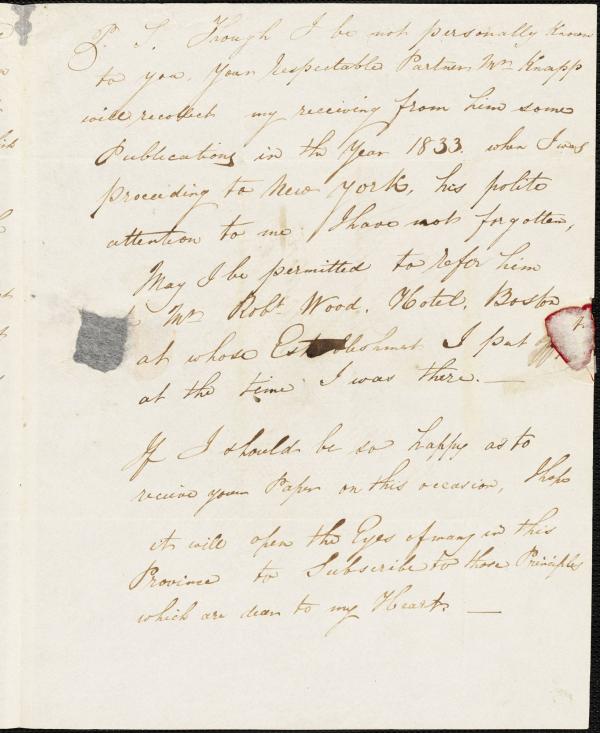 P. S. Though I be not personally Known
to you, Your Respectable Partner Mr. Knapp
will recollect my receiving from him some
Publications in the Year 1833. when I was
proceeding to New York, his polite
attention to me I have not forgotten,
May I be permitted to refer him
Mr Robt Wood. Hotel. Boston
at whose Establishment I put
at the time I was there. —
If I should be so happy as to
receive your Paper on this occasion, I hope
it will open the Eyes of many in this
Province to Subscribe to those Principles
which are dear to my Heart. —